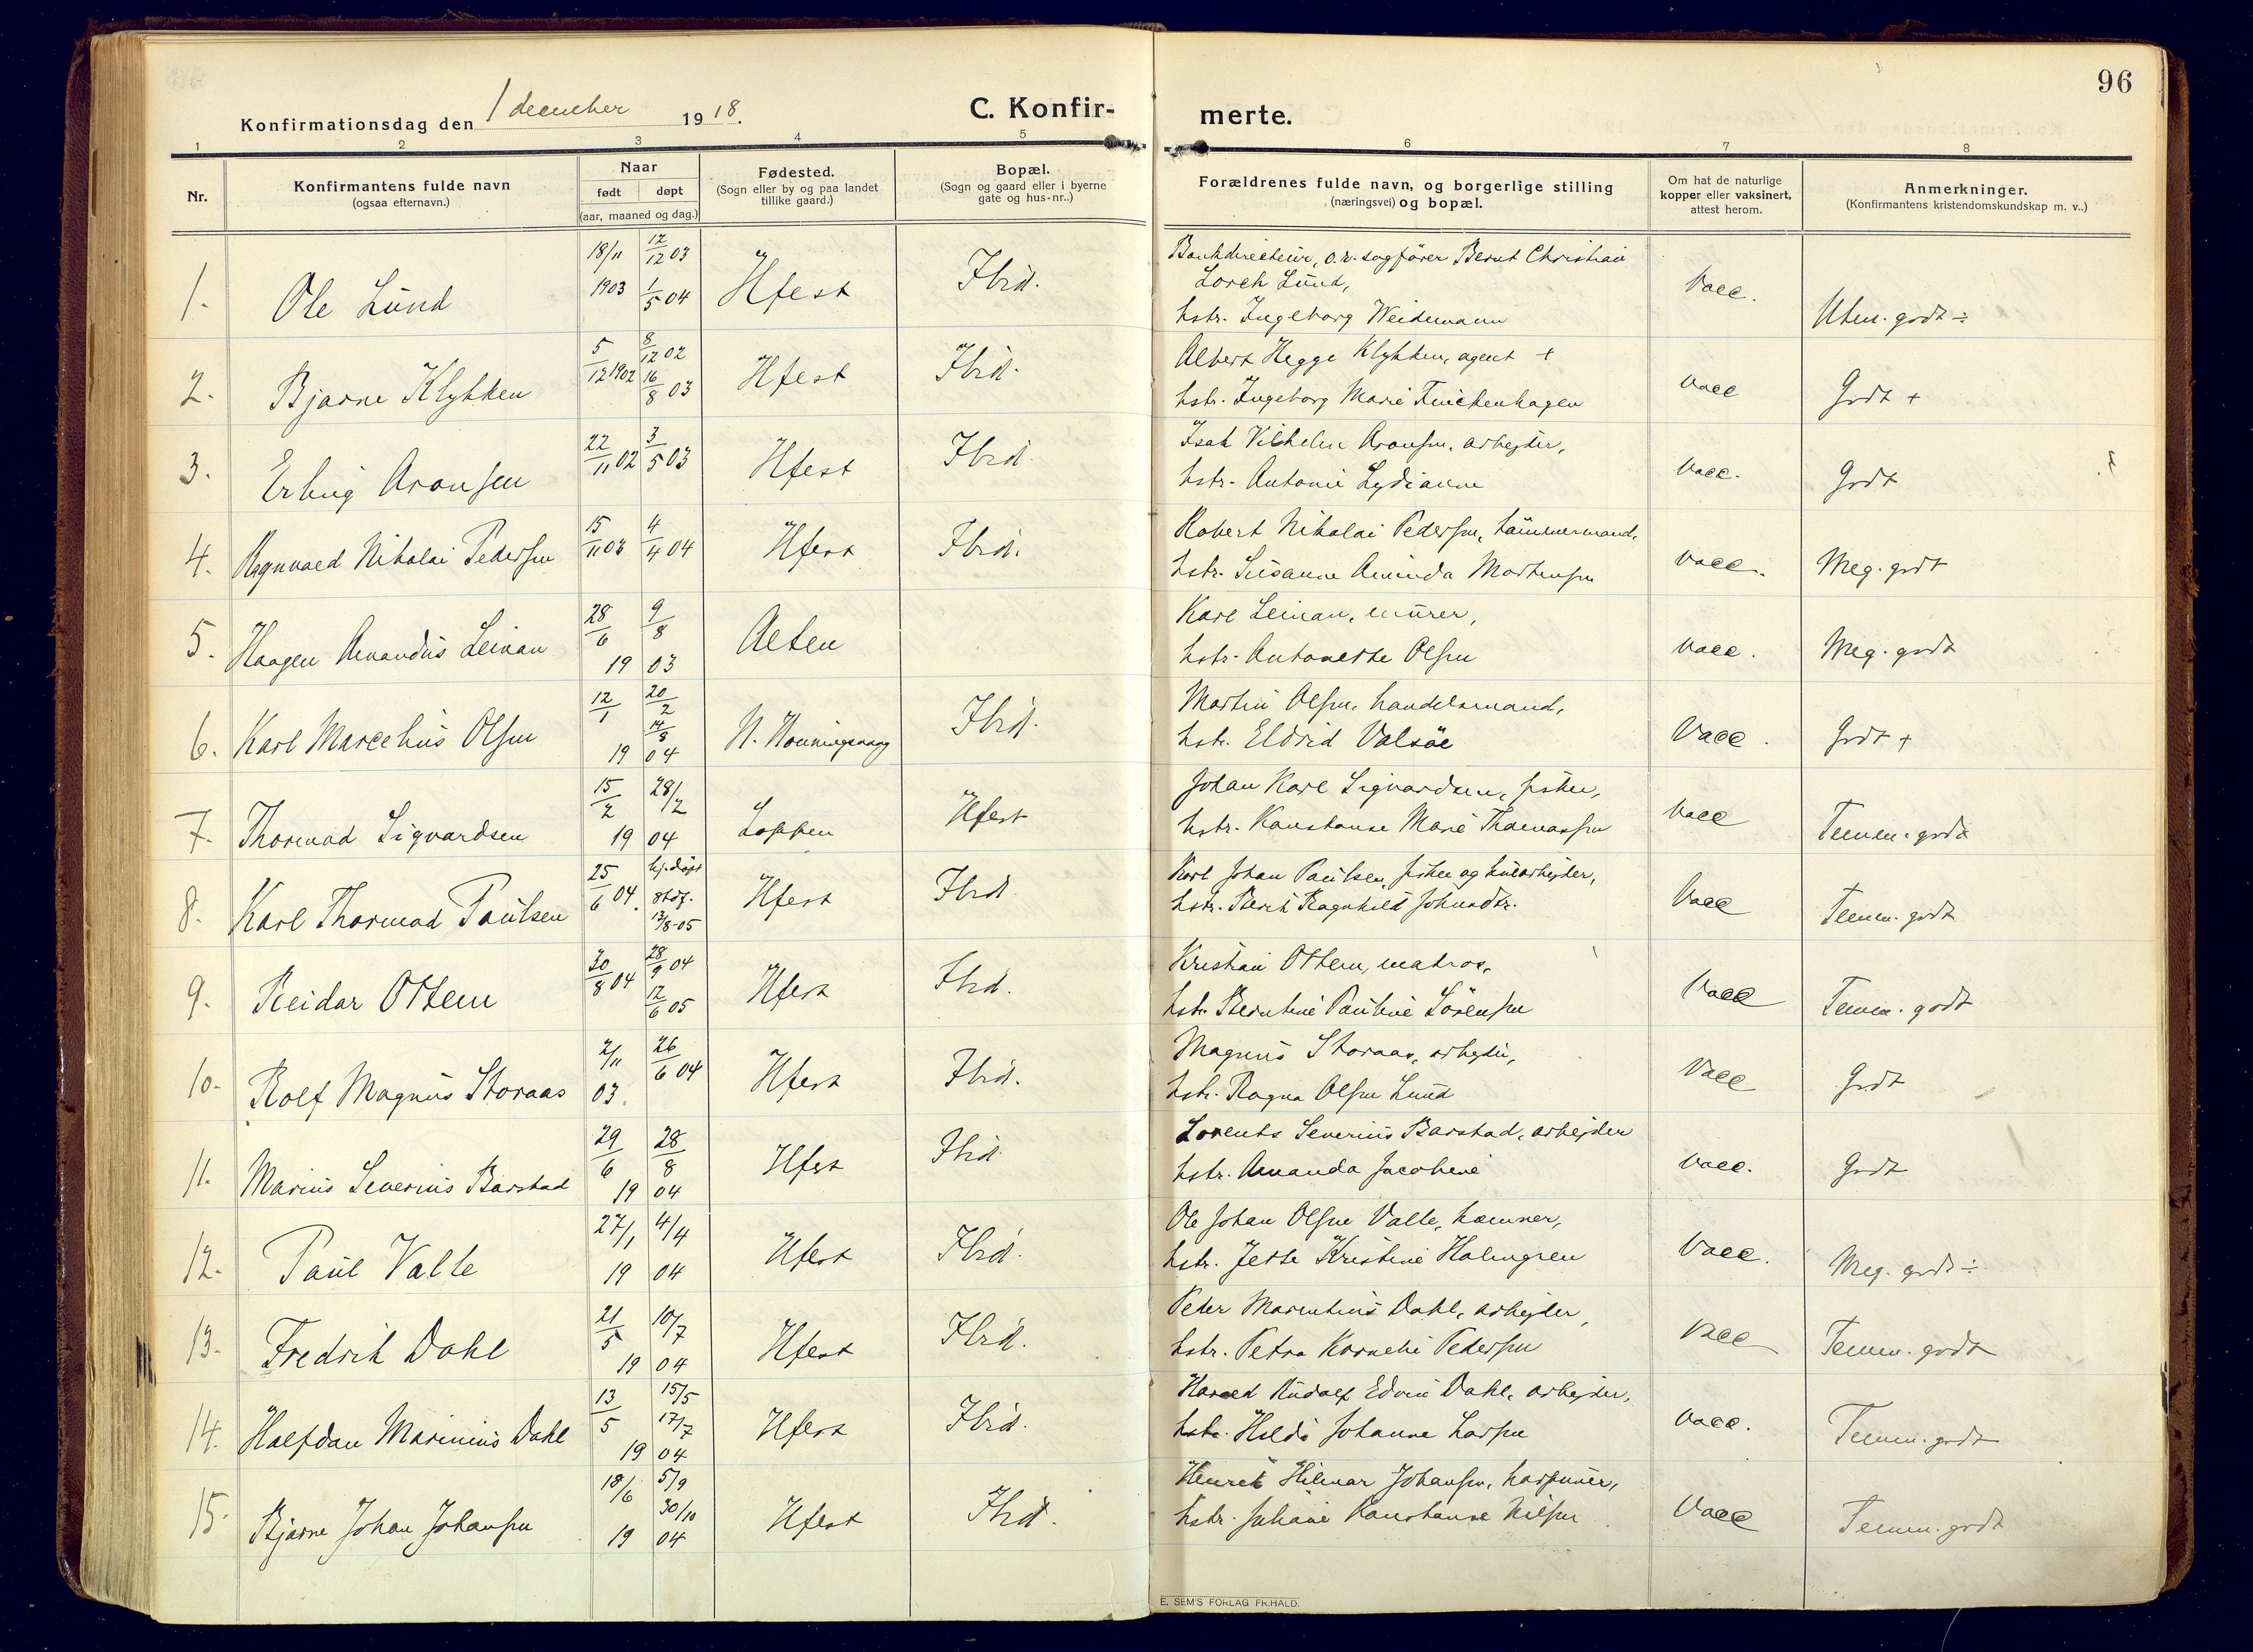 96
Konfirmationsdag den 1 december 1918.
C. Konfir-merte.
1 2 3 4 5 6 7 8
Nr.
Konfirmantens fulde navn
(ogsaa efternavn.)
Naar
født døpt
(aar, maaned og dag.)
Fødested.
(Sogn eller by og paa landet
tillike gaard.)
Bopæl.
(Sogn og gaard eller i byerne
gate og hus-nr..)
Forældrenes fulde navn, og borgerlige stilling
(næringsvei) og bopæl.
Om hat de naturlige
kopper eller vaksinert,
attest herom.
Anmerkninger.
(Konfirmantens kristendomskundskap m. v..)
1. Ole Lund 18/11 1903 12/12 03 1/5 04 Hfest Ibid.
Bankdirecteur, o.r. sagfører Bernt Christian
Lorch Lund,
hstr. Ingeborg Weidemann
Vacc. Utm. godt ÷
2. Bjarne Klykken 5/12 1902 8/12 02 16/8 03 Hfest Ibid.
Albert Hegge Klykken, agent +
hstr. Ingeborg Marie Finckenhagen
Vacc Godt +
3. Erling Aronsen 22/11 02 3/5 03 Hfest Ibid.
Isak Vilhelm Aronsen, arbejder,
hstr. Antonie Lydianne
Vacc. Godt
4. Ragnvald Nikolai Pedersen 15/11 03 4/4 04 Hfest Ibid.
Robert Nikolai Pedersen, tømmermand,
hstr. Susanne Aminda Mortensen
Vacc. Meg. godt
5. Haagen Amandus Leinan 28/6 9/8 1903 Alten
Karl Leinan, murer,
hstr. Antonette Olsen
Vacc. Meg. godt
6. Karl Marcelius Olsen 12/1 20/2 14/8 1904 N. Honningsvaag Ibid.
Martin Olsen, handelsmand,
hstr. Eldrid Valsøe
Vacc. Godt +
7. Thormod Sigvardsen 15/2 28/2 1904 Loppen Hfest
Johan Karl Sigvardsen, fisker,
hstr. Konstanse Marie Thomassen
Vacc Temm. godt
8. Karl Thormod Paulsen 25/6 04. hj.døpt stdf. 13/8-05 Hfest Ibid.
Karl Johan Paulsen, fisker og kularbejder,
hstr. Berit Ragnhild Johnsdtr.
Vacc Temm. godt
9. Reidar Ottem 30/8 04 28/9 04 12/6 05 Hfest Ibid.
Kristian Ottem, matros,
hstr. Berntine Pauline Sørensen
Vacc Temm. godt
10. Rolf Magnus Storaas 2/11 03. 26/6 04 Hfest Ibid.
Magnus Storaas, arbejder,
hstr. Ragna Olsen Lund
Vacc Godt
11. Marius Severius Barstad 29/6 28/8 1904 Hfest Ibid.
Lorents Severius Barstad, arbejder
hstr. Amanda Jacobine
Vacc. Godt
12. Paul Valle 27/1 4/4 1904 Hfest Ibid.
Ole Johan Olsen Valle, kæmner,
hstr. Jette Kristine Holmgren
Vacc. Meg. godt ÷
13. Fredrik Dahl 21/5 10/7 1904 Hfest Ibid.
Peder Marentius Dahl, arbejder,
hstr. Petra Kornelie Pedersen
Vacc Temm. godt
14. Halfdan Marinius Dahl 13/5 15/5 17/7 1904 Hfest Ibid.
Harald Rudolf Edvin Dahl, arbejder,
hstr. Hilda Johanne Larsen
Vacc. Temm. godt
15. Bjarne Johan Johansen 18/6 5/9 30/10 1904 Hfest Ibid.
Henrik Hilmar Johansen, harpuner,
hstr. Juliane Konstanse Nilsen
Vacc Temm. godt
E. SEM'S FORLAG FR.HALD.